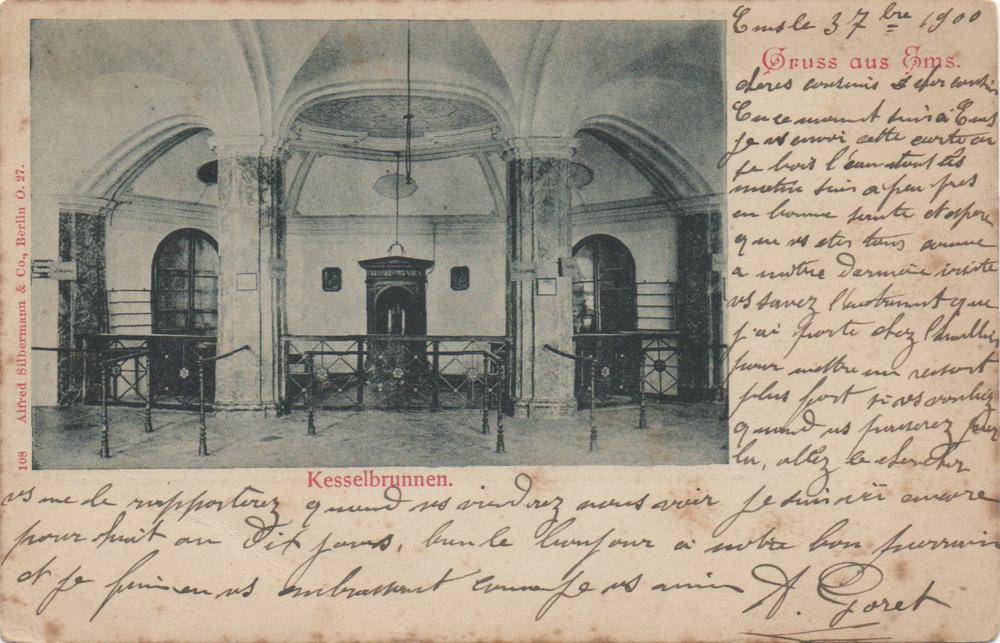 Ems le 3 7bre 1900
Gruss aus Ems.
cheres cousins & cher cousin
En ce moment suis à Ems
je vs envoi cette carte ou
je bois l'eau tout les
matin suis a peu pres
en bonne sente et espere
que vs etes tous comme
a nôtre derniere visite
vs savez l'instrument que
j'ai porte chez
pour mettre un ressort
plus fort si vs vouliez
quand vs passerez chez
lui, allez le chercher
vs me le rapporterez quand vs viendrez nous voir je suis ici encore
pour huit ou dix jours, bien le bonjour a notre bon parrain
et je fini en vs embrassent comme je vs aime A. Goret
Kesselbrunnen.
KESSELBRUNNEN
108 Alfred Silbermann & Co., Berlin O. 27.